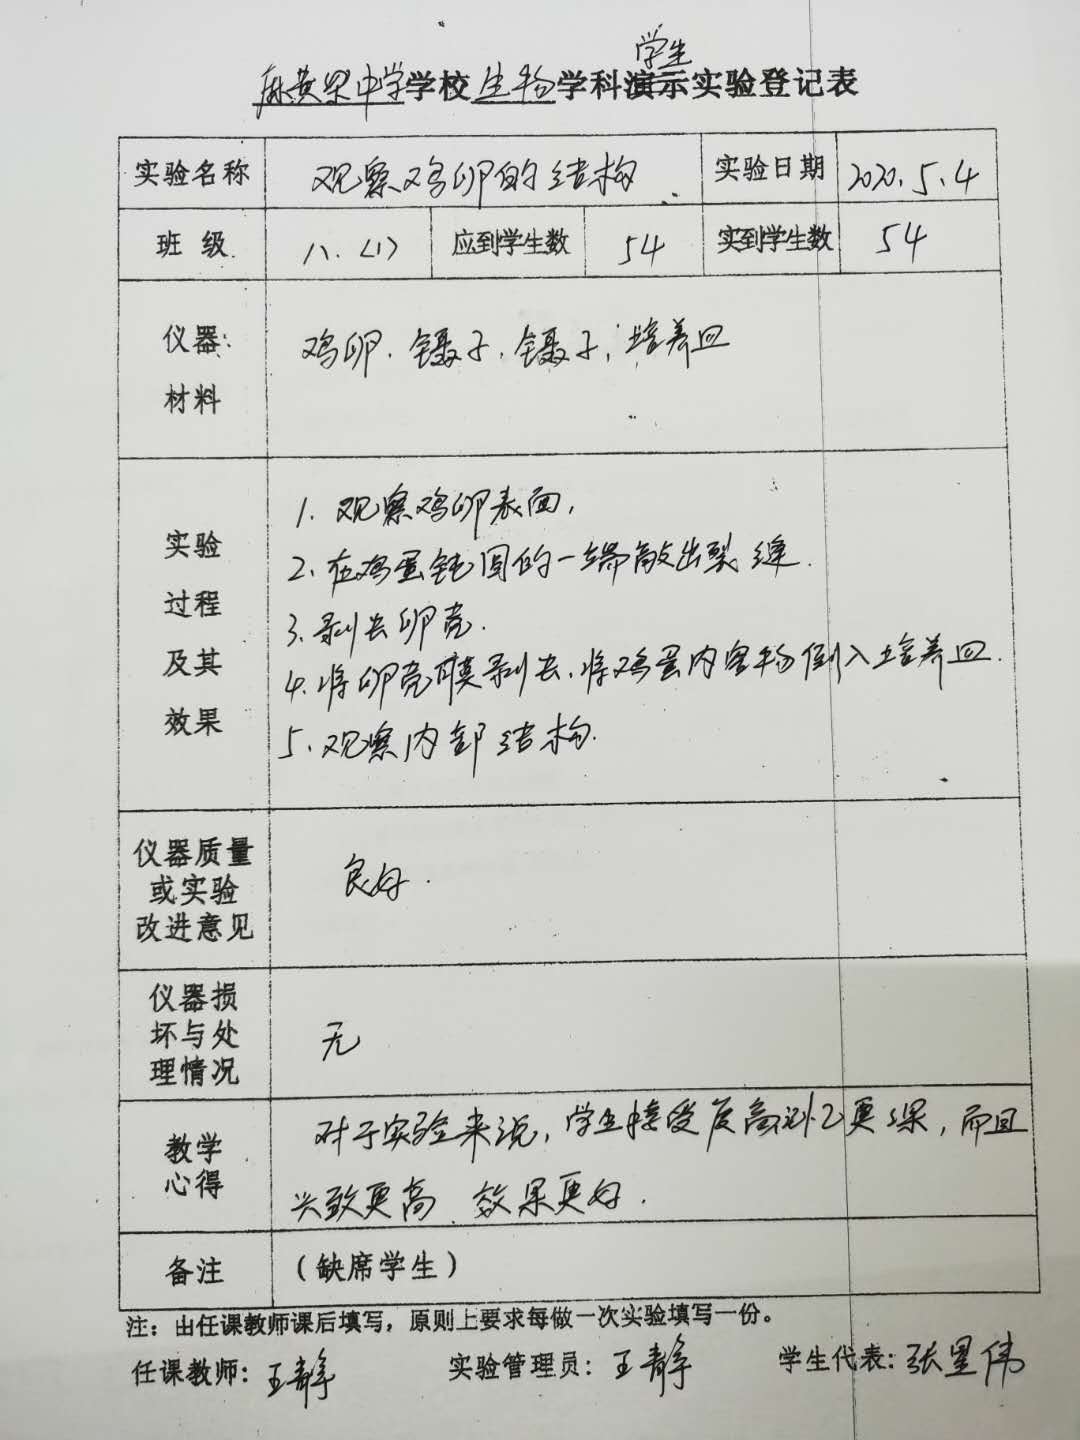 学生
麻黄梁中学学校生物学科演示实验登记表
实验名称 观察鸡卵的结构 实验日期 2020.5.4
班级 八.<1> 应到学生数 54 实到学生数 54
仪器: 鸡卵.镊子.镊子,培养皿
材料
1.观察鸡卵表面,
实验 2.在鸡蛋钝圆的一端敲出裂缝.
过程 3.剥去卵壳.
及其 4.将卵壳膜剥去.将鸡蛋内容物倒入培养皿.
效果 5.观察内部结构.
仪器质量
或实验 良好.
改进意见
仪器损
坏与处 无
理情况
教学 对于实验来说,学生接受度高记忆更深,而且
心得 兴致更高.效果更好.
备注 (缺席学生)
注:由任课教师课后填写,原则上要求每做一次实验填写一份。
任课教师:王静 实验管理员:王静 学生代表:张星伟